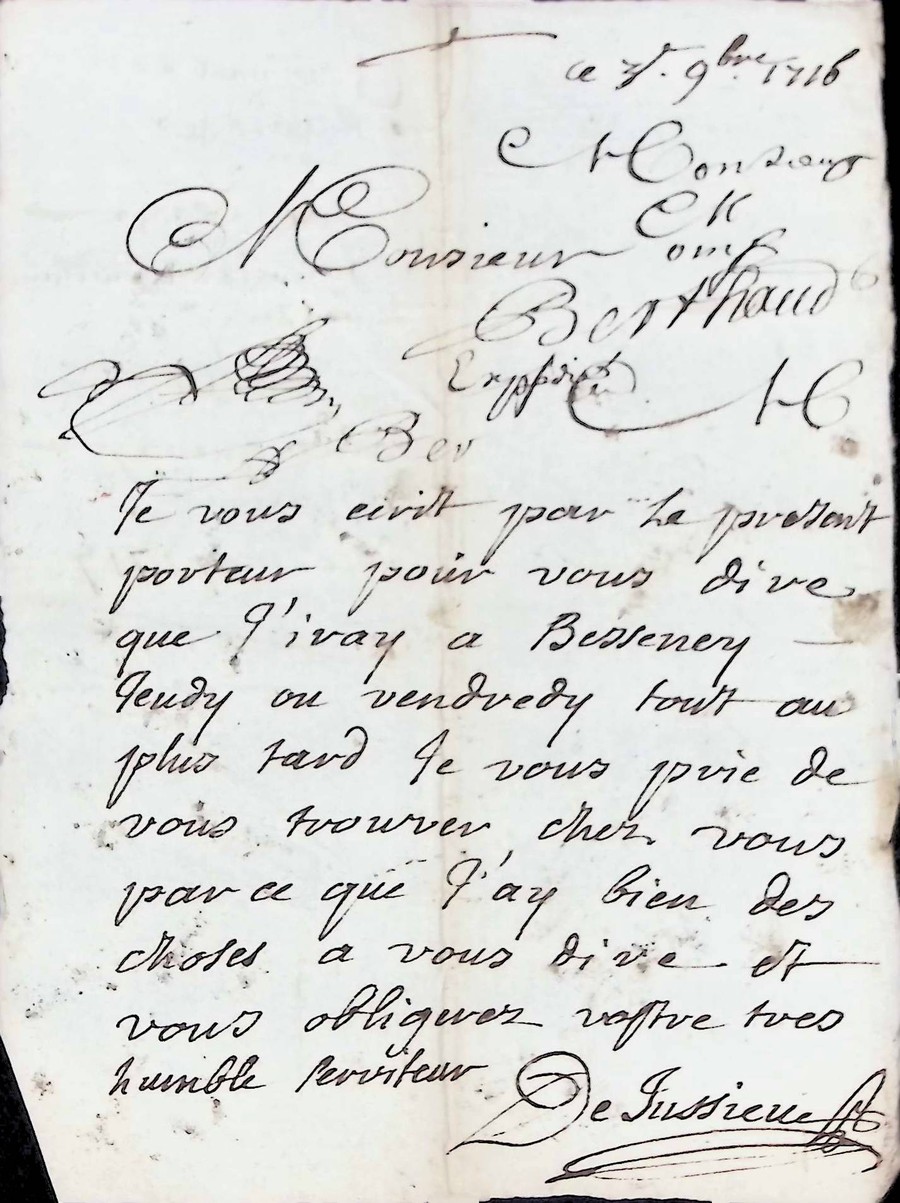 ce 3e. 9bre 1716
Monsieur
M
Monsieur
omp
Berthaud
M
Ber
Je vous ecrit par le presant
porteur pour vous dire
que J'iray a Besseney
Jeudy ou vendredy tout au
plus tard Je vous prie de
vous trouver chez vous
par ce que J'ay bien des
choses a vous dire et
vous obligerez vostre tres
humble serviteur
De Jussieu